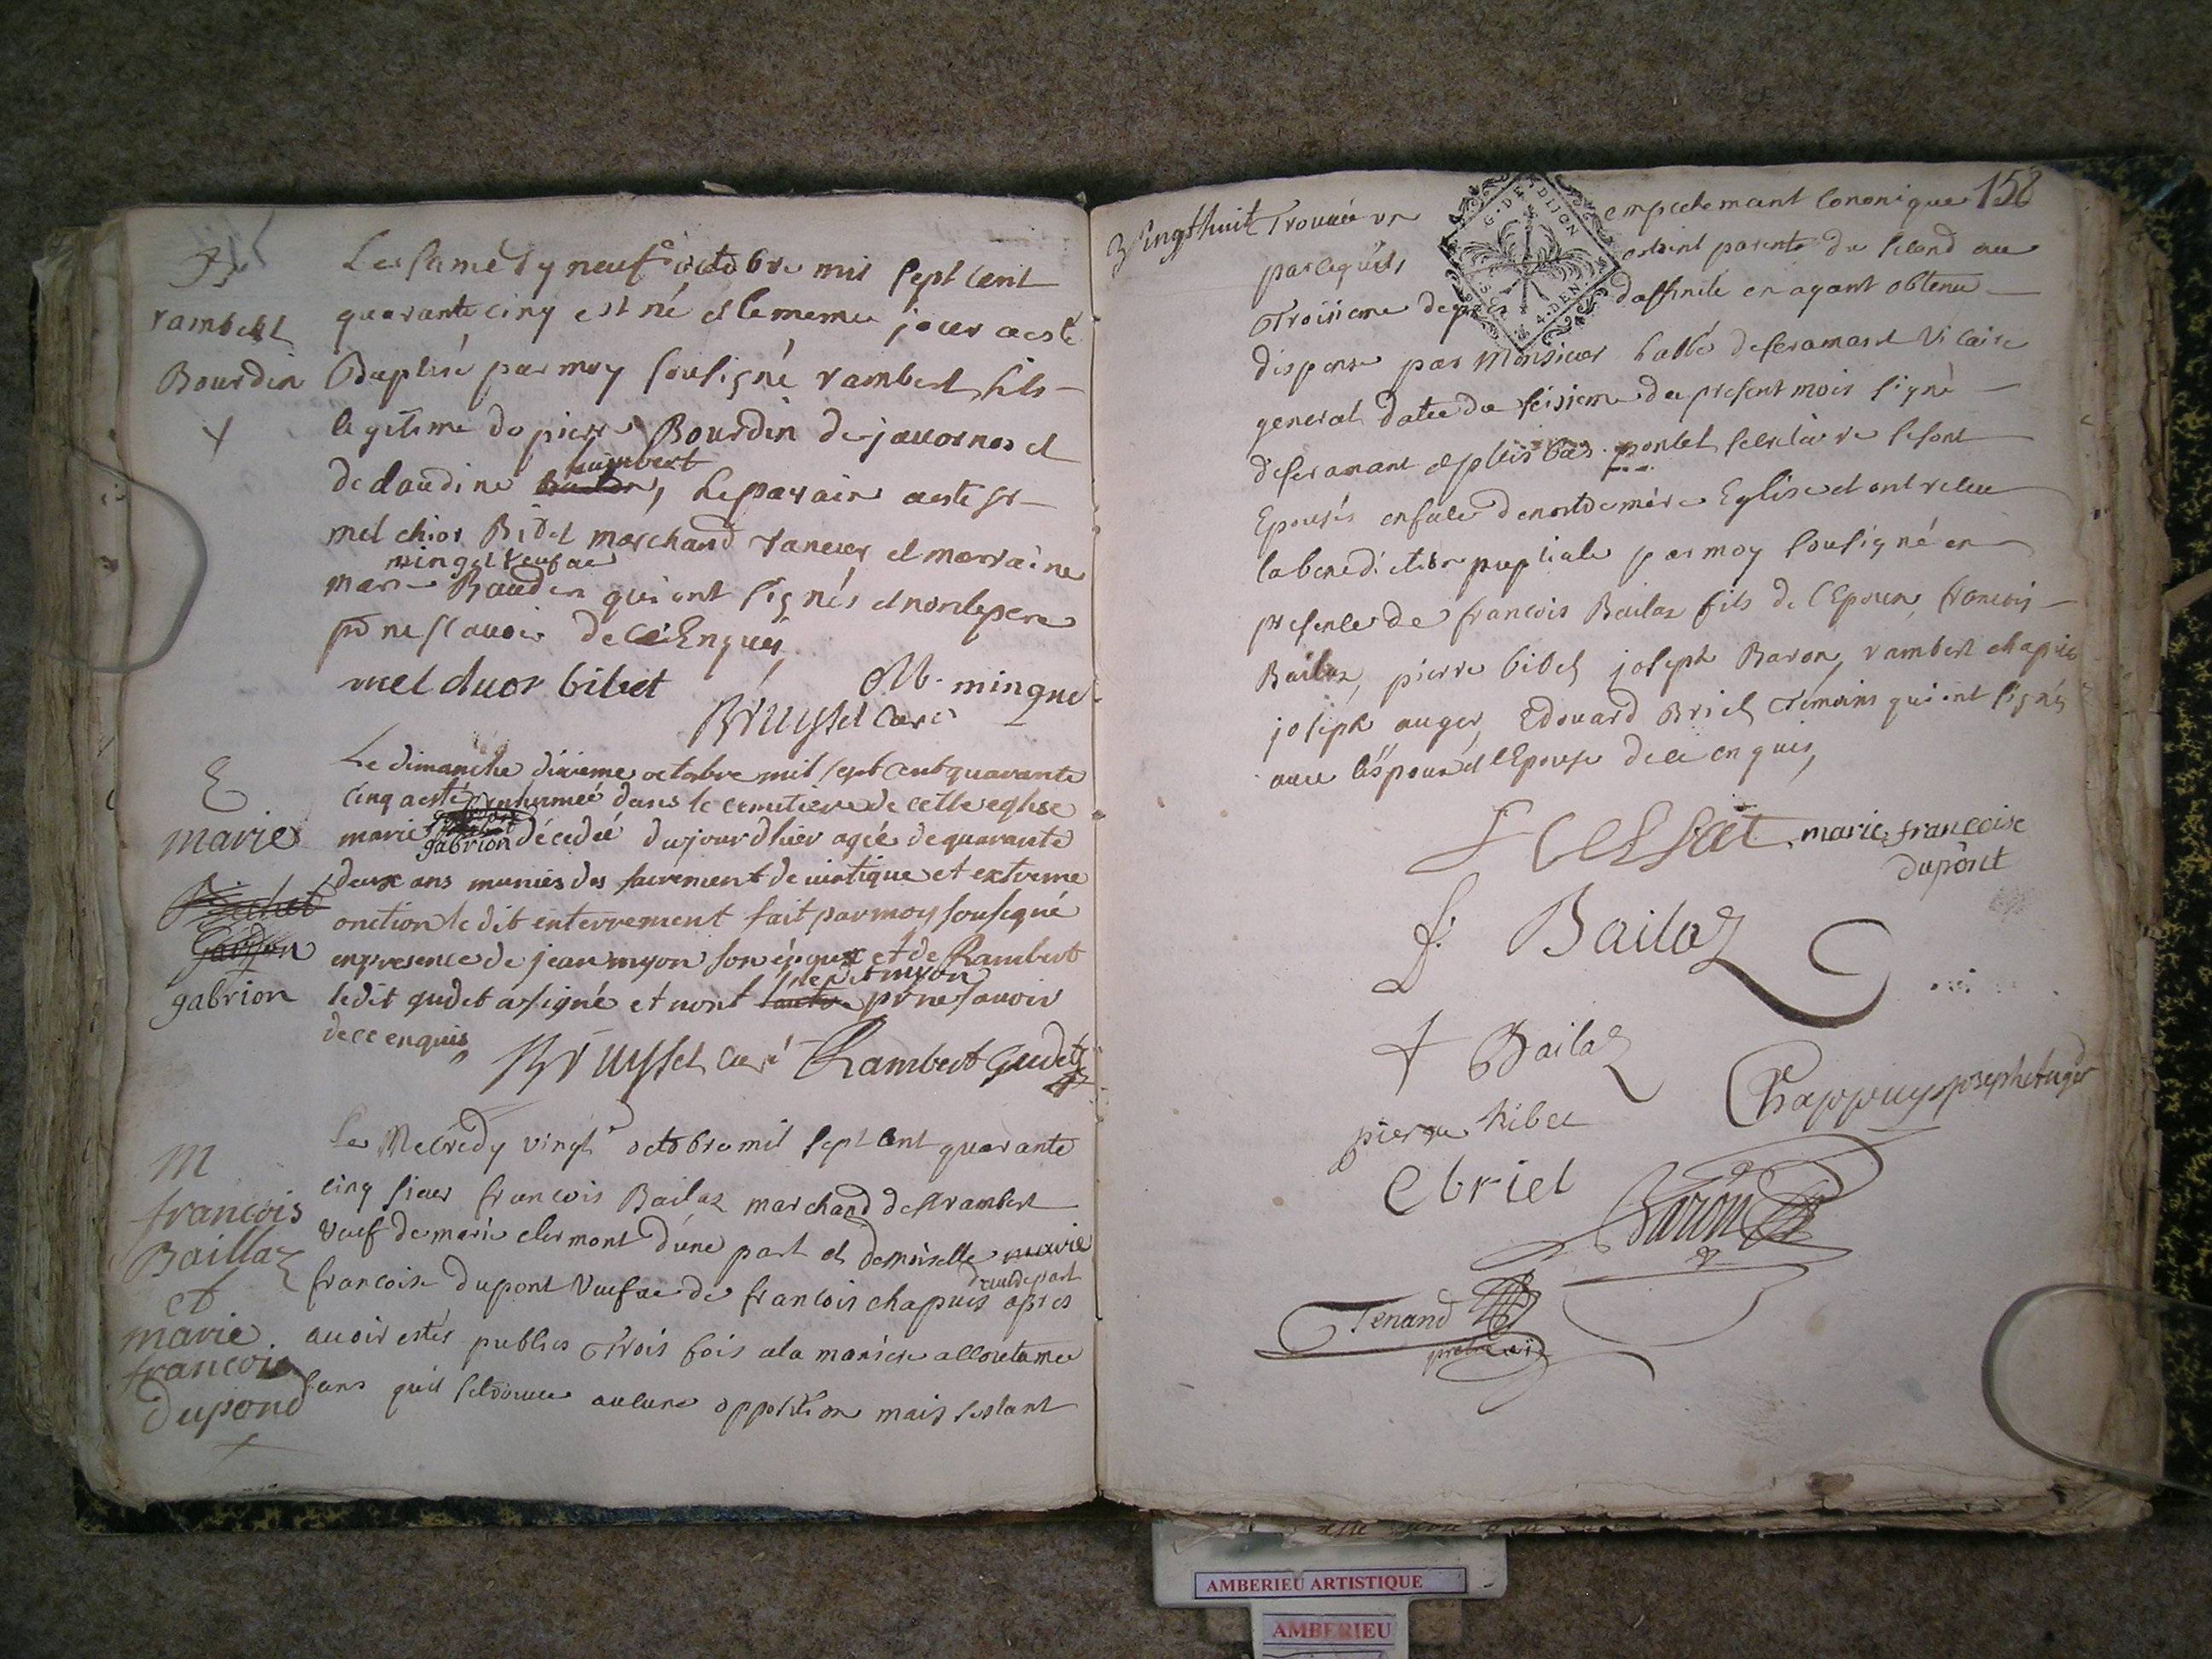 B
rambert
Bourdin
Le samedy neufe octobre mil sept cent
quarante cinq est né et le meme jour a esté
Baptisé par moy sousigné rambert fils
legitime de pierre Bourdin de javornos et
humbert
de claudine, le parain a esté sr
melchior Bibet marchand taneur et marraine
minget veufve
marie Baudin qui ont signés et non le pere
pr ne scavoir de ce Enquis
melchior bibet
M. mingue
Bruysset curé
E
marie
gabrion
Le dimanche dixieme octobre mil sept cent quarante
cinq a esté inhumeé dans le cemetiere de cette eglise
marie gabrion décedeé du jour dhier agée de quarante
deux ans munies des sacrement de viatique et extreme
onction le dit enterrement fait par moy sousigné
en presence de jean myon son époux et de Rambert
ledit myon
ledit gudet a signé et nont pr ne savoir
de ce enquis
Bruysset curé Rambert Gudet
M
francois
Baillaz
et
marie
francoise
dupond
Le Mecredy vingt octobre mil sept cent quarante
cinq sieur francois Bailaz marchand de st rambert
veuf de marie clermont d'une part et demoiselle marie
francoise dupont veufve de francois chapuis apres
d'autre part
avoir estés publies trois fois a la maniere accoutumee
sans quil se trouve aucune opposition mais sestant
158
vingt huit
G. DE DIJON
4. DEN
trouvée un empechemant canonique
par lequels estoint parents du second au
troisieme degrés daffinité en ayant obtenu
dispense par Monsieur l'abbé de feramant vicaire
general datee du seisieme du present mois signé
deferamant et plus bas pontet secretaire se sont
Epousés en face de nostre mere Eglise et ont receu
la benediction nuptiale par moy sousigné en
presence de francois Bailaz fils de l'Epoux, francois
Bailaz, pierre bibet joseph Baron, rambert chapuis
joseph auger, Edouard Briel temoins qui ont signés
avec l'époux et l'Epouse de ce enquis,
marie francoise
dupont
f. Bailaz
f Bailaz
Chappuys joseph Auger
pierre Bibet
E briel
Baron
Tenand
AMBERIEU ARTISTIQUE
AMBERIEU